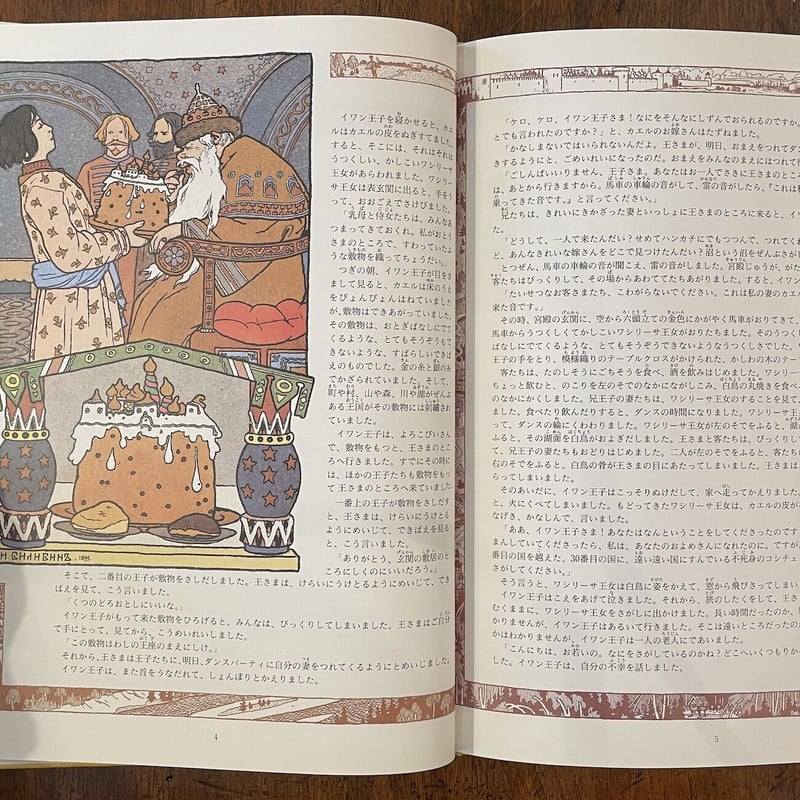 イワン王子を寝かせると、カエ
ルはカエルの皮をぬぎすてました。
すると、そこには、それはそれは
うつくしい、かしこいワシリーサ
王女があらわれました。ワシリー
サ王女は表玄関に出ると、手をう
って、おおごえでさけびました。
「乳母と侍女たちは、みんなあ
つまってきておくれ。私がおとう
さまのところで、すわっていたよ
うな敷物を織ってちょうだい。」
つぎの朝、イワン王子が目をさ
まして見ると、カエルは床のうえ
をぴょんぴょんはねていました
が、敷物はできあがっていました。
その敷物は、おとぎばなしにでて
くるような、とてもそうぞうもで
きないような、すばらしいできば
えのものでした。金の糸と銀の糸
でかざられていました。そして、
町や村、山や森、川や湖がぜんぶ
ある王国がその敷物には刺繍され
ていました。
イワン王子は、よろこびいさん
で、敷物をもつと、王さまのとこ
ろへ行きました。すでにその時に
は、ほかの王子たちも敷物をもっ
て王さまのところへ来ていました。
一番上の王子が敷物をさしだす
と、王さまは、けらいにうけとる
ようにめいじて、できばえを見る
と、こう言いました。
「ありがとう、玄関の敷居のと
ころにしくのにいいだろう。」
И. БИЛИБИНЪ. 1899.
そこで、二番目の王子が敷物をさしだしました。王さまは、けらいにうけとるようにめいじて、でき
ばえを見て、こう言いました。
「くつのどろおとしにいいな。」
イワン王子がもって来た敷物をひろげると、みんなは、びっくりしてしまいました。王さまはご自分
で手にとって、見てから、こうめいれいしました。
「この敷物はわしの王座のまえにしけ。」
それから、王さまは王子たちに、明日、ダンスパーティに自分の妻をつれてくるようにとめいじました。
イワン王子は、また首をうなだれて、しょんぼりとかえりました。
4
「ケロ、ケロ、イワン王子さま！なにをそんなにしずんでおられるのですか
とでも言われたのですか？」と、カエルのお嫁さんはたずねました。
「かなしまないではいられないんだよ。王さまが、明日、おまえをつれてダン
きするようにと、ごめいれいになったのだ。おまえをみんなのまえにはつれて
「ごしんぱいいりません、王子さま。あなたはお一人でさきに王さまのとこ
は、あとから行きますから。馬車の車輪の音がして、雷の音がしたら、『これは
乗ってきた音です。』と言ってください。」
兄たちは、きれいにきかざった妻といっしょに王さまのところに来ると、イワ
た。
「どうして、一人で来たんだい？せめてハンカチにでもつつんで、つれてく
ど、あんなきれいな嫁さんをどこで見つけたんだい？沼という沼をぜんぶさが
とつぜん、馬車の車輪の音が聞こえ、雷の音がしました。宮殿じゅうが、がた
客たちはびっくりして、その場からあわててたちあがりました。すると、イワン
「たいせつなお客さまたち、こわがらないでください。これは私の妻のカエル
来た音です。」
その時、宮殿の玄関に、空から六頭立ての金色にかがやく馬車がおりてきて、
馬車からうつくしくてかしこいワシリーサ王女がおりたちました。そのうつく
ばなしにでてくるような、とてもそうぞうできないようなうつくしさでした。
王子の手をとり、模様織りのテーブルクロスがかけられた、かしわの木のテー
客たちは、たのしそうにごちそうを食べ、酒を飲みはじめました。ワシリーサ
ちょっと飲むと、のこりを左そでのなかにながしこみ、白鳥の丸焼きを食べ
のなかにかくしました。兄王子の妻たちは、ワシリーサ王女のすることを見て
ました。食べたり飲んだりすると、ダンスの時間になりました。ワシリーサ王
って、ダンスの輪にくわわりました。ワシリーサ王女が左のそでをふると、湖
ふると、その湖面を白鳥がおよぎだしました。王さまと客たちは、びっくりし
て、兄王子の妻たちもおどりはじめました。二人が左のそでをふると、客たち
右のそでをふると、白鳥の骨が王さまの目にあたってしまいました。王さまは
らってしまいました。
そのあいだに、イワン王子はこっそりぬけだして、家へ走ってかえりました。
と、火にくべてしまいました。もどってきたワシリーサ王女は、カエルの皮が
なげき、かなしんで、言いました。
「ああ、イワン王子さま！あなたはなんということをしてくださったのです
まんしていてくださったら、私は、あなたのおよめさんになれたのに。ですが
番目の国を越えた、30番目の国に、遠い遠い国にすんでいる不死身のコシチェ
さがしてください。」
そう言うと、ワシリーサ王女は白鳥に姿をかえて、窓から飛びさってしまい
イワン王子はこえをあげて泣きました。それから、旅のしたくをして、王さ
むくままに、ワシリーサ王女をさがしに出かけました。長い時間だったのか、
かりませんが、イワン王子はあるいて行きました。そこは遠いところだったの
かはわかりませんが、イワン王子は一人の老人にであいました。
「こんにちは、お若いの。なにをさがしているのかね？どこへいくつもりか
した。イワン王子は、自分の不幸を話しました。
5